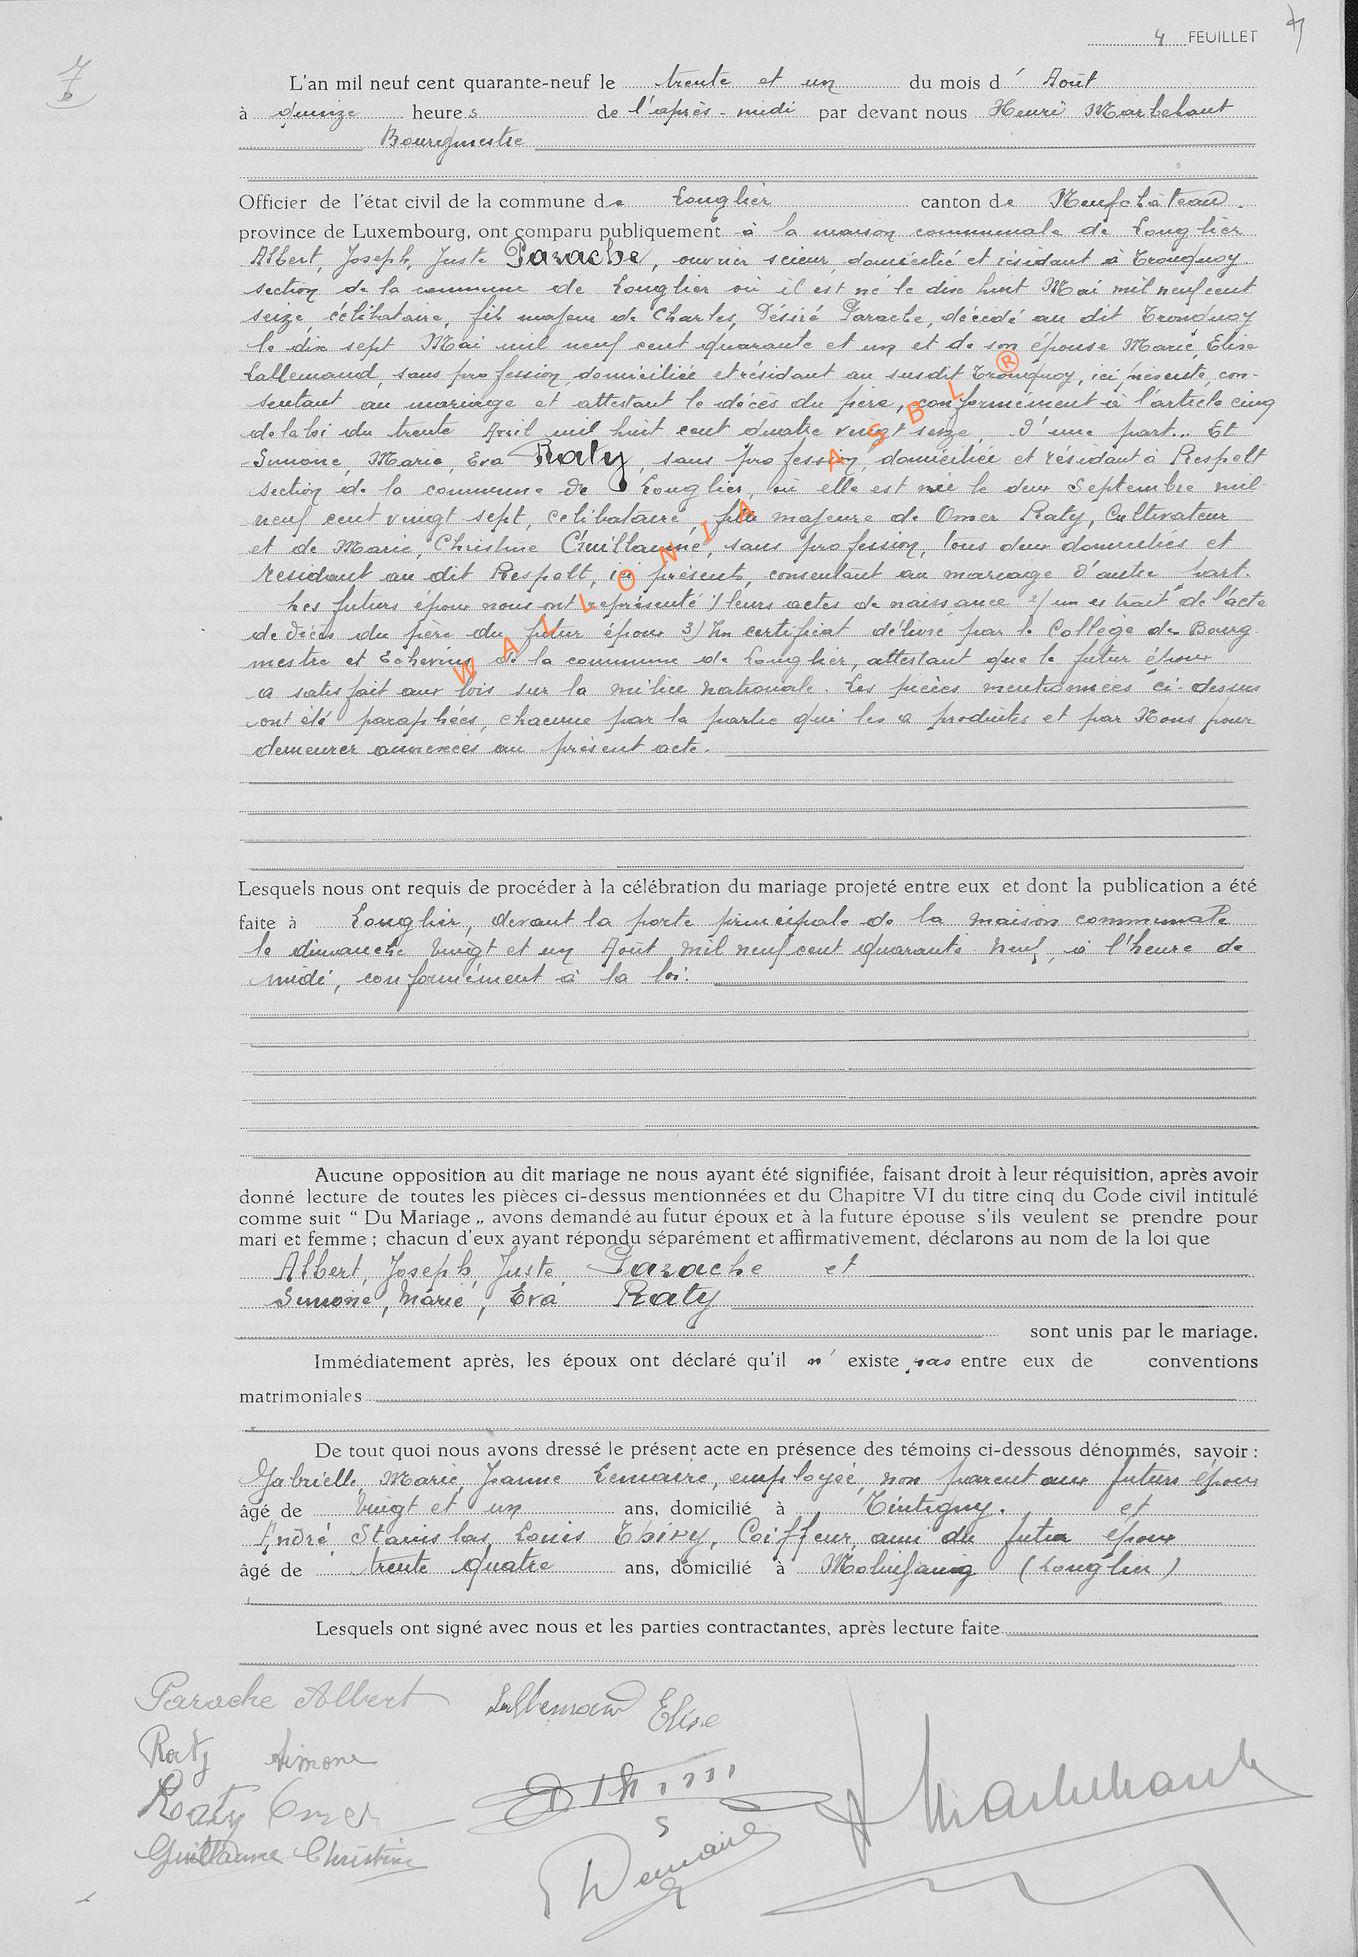 4 FEUILLET
7
L'an mil neuf cent quarante-neuf le trente et un du mois d' Août
à quinze heures de l'après-midi par devant nous Henri Marbehant
Bourgmestre
Officier de l'état civil de la commune de Longlier canton de Neufchâteau.
province de Luxembourg, ont comparu publiquement à la maison communale de Longlier
Albert, Joseph, Juste Parache, ouvrier scieur, domicilié et résidant à Tronquoy
section de la commune de Longlier où il est né le dix huit Mai mil neuf cent
seize, célibataire, fils majeur de Charles, Désiré Parache, décédé au dit Tronquoy
le dix sept Mai mil neuf cent quarante et un et de son épouse Marie, Elise
Lallemand, sans profession, domiciliée et résidant au susdit Tronquoy, ici présente, con-
sentant au mariage et attestant le décès du père, conformément à l'article cinq
de la loi du trente Avril mil huit cent quatre vingt seize, d'une part.. Et
Simone, Marie, Eva Raty, sans profession, domiciliée et résidant à Respelt
section de la commune de Longlier, où elle est née le deux Septembre mil
neuf cent vingt sept, célibataire, fille majeure de Omer Raty, Cultivateur
et de Marie, Christine Guillaume, sans profession, tous deux domiciliés et
résidant au dit Respelt, ici présents, consentant au mariage d'autre part.
Les futurs époux nous ont représenté 1/ leurs actes de naissance 2/ un extrait de l'acte
de décès du père du futur époux 3) Un certificat délivré par le Collège des Bourg
mestre et Echevins de la commune de Longlier, attestant que le futur époux
a satisfait aux lois sur la milice nationale. Les pièces mentionnées ci-dessus
ont été paraphées, chacune par la partie qui les a produites et par Nous pour
demeurer annexées au présent acte.
WALLONIA ASBL ®
Lesquels nous ont requis de procéder à la célébration du mariage projeté entre eux et dont la publication a été
faite à Longlier, devant la porte principale de la maison communale
le dimanche vingt et un Août mil neuf cent quarante neuf, à l'heure de
midi, conformément à la loi.
Aucune opposition au dit mariage ne nous ayant été signifiée, faisant droit à leur réquisition, après avoir
donné lecture de toutes les pièces ci-dessus mentionnées et du Chapitre VI du titre cinq du Code civil intitulé
comme suit “ Du Mariage „ avons demandé au futur époux et à la future épouse s'ils veulent se prendre pour
mari et femme ; chacun d'eux ayant répondu séparément et affirmativement, déclarons au nom de la loi que
Albert, Joseph, Juste, Parache et
Simone, Marie, Eva Raty
sont unis par le mariage.
Immédiatement après, les époux ont déclaré qu'il n' existe pas entre eux de conventions
matrimoniales
De tout quoi nous avons dressé le présent acte en présence des témoins ci-dessous dénommés, savoir :
Gabrielle, Marie, Jeanne Lemaire, employée, non parent aux futurs époux
âgé de vingt et un ans, domicilié à Tintigny. et
André Stanislas, Louis Thiry, Coiffeur, ami du futur époux
âgé de trente quatre ans, domicilié à Molinfaing (Longlier)
Lesquels ont signé avec nous et les parties contractantes, après lecture faite
Parache Albert Lallemand Elise
Raty Simone
Raty Omer
Guillaume Christine